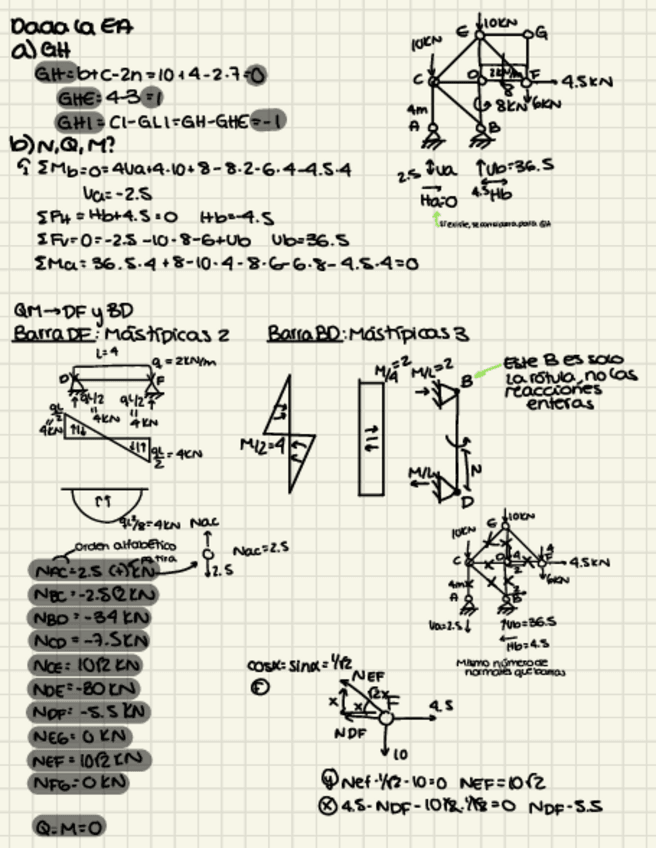 Dada la EA
a) GH
GH=b+c-2n=10+4-2.7=0
GHE=4-3=1
GHI=CI-GLI=GH-GHE=-1
b) N,Q,M?
ΣMb=0=4Va+4.10+8-8.2-6.4-4.5.4
Va=-2.5
ΣFH=Hb+4.5=0 Hb=-4.5
ΣFv=0=-2.5-10-8-6+Ub Ub=36.5
ΣMa=36.5.4+8-10.4-8.6-6.8-4.5.4=0
10KN
E
G
10KN
C
D
2KN/m
F
4.5KN
8
4m
8KN
6KN
A
B
2.5
Va
Ub=36.5
Ha=0
4.5
Hb
QM→DF y BD
Barra DF: Más típicas 2
Barra BD: Más típicas 3
L=4
q=2KN/m
D
F
qL/2
qL/2
4KN
4KN
qL/2
4KN
qL/2=4KN
qL²/8=4KN
M/2=4
M/4=2
M/L=2
B
2
M/L
D
Este B es solo
la rótula, no las
reacciones
enteras
Orden alfabético
Nac
Nac=2.5
2.5
NAC=2.5 (+) KN
NBC=-2.5√2 KN
NBD=-34 KN
NCD=-7.5KN
NCE=10√2 KN
NDE=-30 KN
NDF=-5.5 KN
NEG=0 KN
NEF=10√2 KN
NFG=0 KN
Q=M=0
10KN
E
10KN
C
4.5KN
6KN
4m
A
B
Va=2.5
Ub=36.5
Hb=4.5
Mismo número de
normales que barras
cosα=sinα=1/√2
F
NEF
F
4.5
NDF
10
Y Nef.1/√2-10=0 NEF=10√2
X 4.5-NDF-10√2.1/√2=0 NDF-5.5